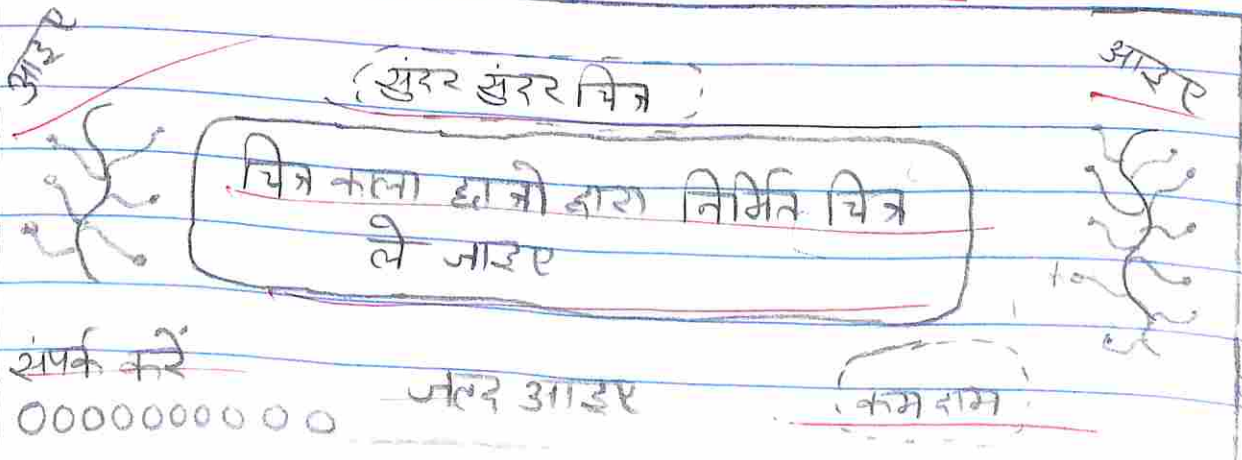 आइए
आइए
सुंदर सुंदर चित्र
चित्र कला छात्रो द्वारा निर्मित चित्र
ले जाइए
संपर्क करें
0000000000
जल्द आइए
कम दाम